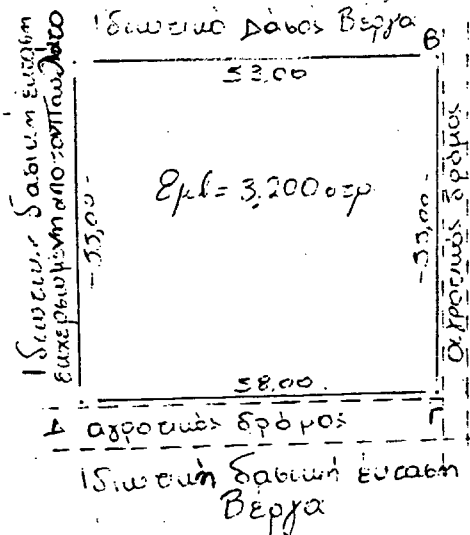 Ιδιωτικό Δάσος Βέργα
Β
53,00
Ιδιωτική δασική έκταση
εκχερσωμένη από τον Παυλάτο
-55,00-
Εμβ = 3.200 στρ
-55,00-
αγροτικός δρόμος
58.00
Δ αγροτικός δρόμος Γ
Ιδιωτική δασική έκταση
Βέργα